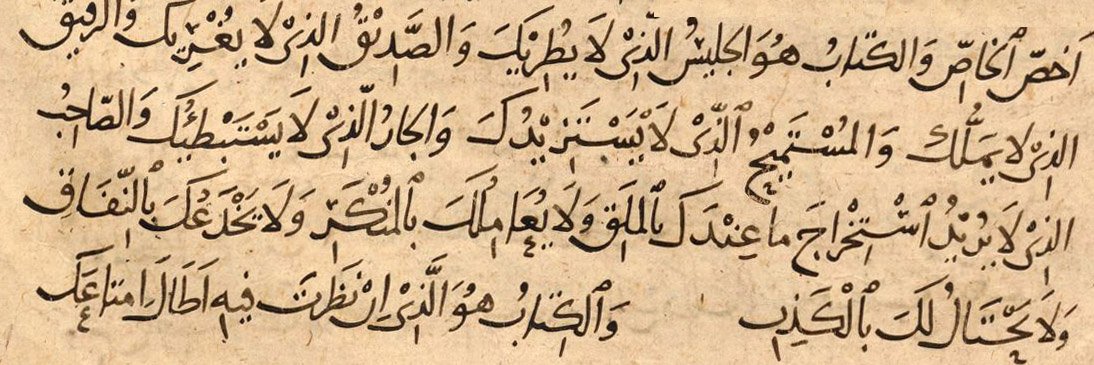 اَخصّ ٱلخاصّ وَالكتابُ هُوَ الجليسُ الذِىْ لَا يُطرِيْكَ وَالصَّدِيْقُ الذِىْ لَا يُغْرِيْكَ وَالرفيق
الذِىْ لا يَمَلُّكَ وَالمُسْتَمِيْحُ ٱلَّذِىْ لَا يَسْتَزِيْدُكَ وَالجارُ الَّذِىْ لَا يَسْتَبْطِئُكَ وَالصّاحِبُ
الذِىْ لَا يُرِيْدُ ٱسْتِخْرَاجَ ما عِنْدَكَ بِٱلمَلَقِ وَلَا يُعَامِلُكَ بِٱلمَُكْرِ وَلَا يَخْدَعُكَ بِٱلنِّفَاقِ
وَلَا يَحْتَالُ لَكَ بِٱلْكَذِبِ وَٱلكِتَابُ هُوَ الَّذِىْ اِنْ نَظَرتَ فِيهِ اَطَالَ اِمتاعَكَ